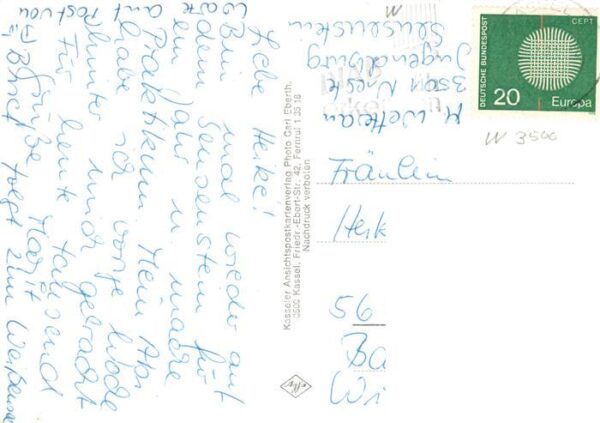 Liebe Heike!
Bin mal wieder auf
dem Sensenstein für
ein Jahr u. mache
Praktikum. Mein Abi
habe ich vorige Woche
hinter mich gebracht
Für heute tausend
Grüße Margit
Brief folgt zum
Warte auf
Post von
Dir
M. Wetterau
3501 Nieste
Jugendburg
Sensenstein
Kasseler Ansichtspostkartenverlag Photo Carl Eberth.
3500 Kassel, Friedr.-Ebert-Str. 42, Fernruf 1 35 18
Nachdruck verboten
DEUTSCHE BUNDESPOST
CEPT
20
Europa
W 3500
Fräulein
Heik
56
Ba
Wi